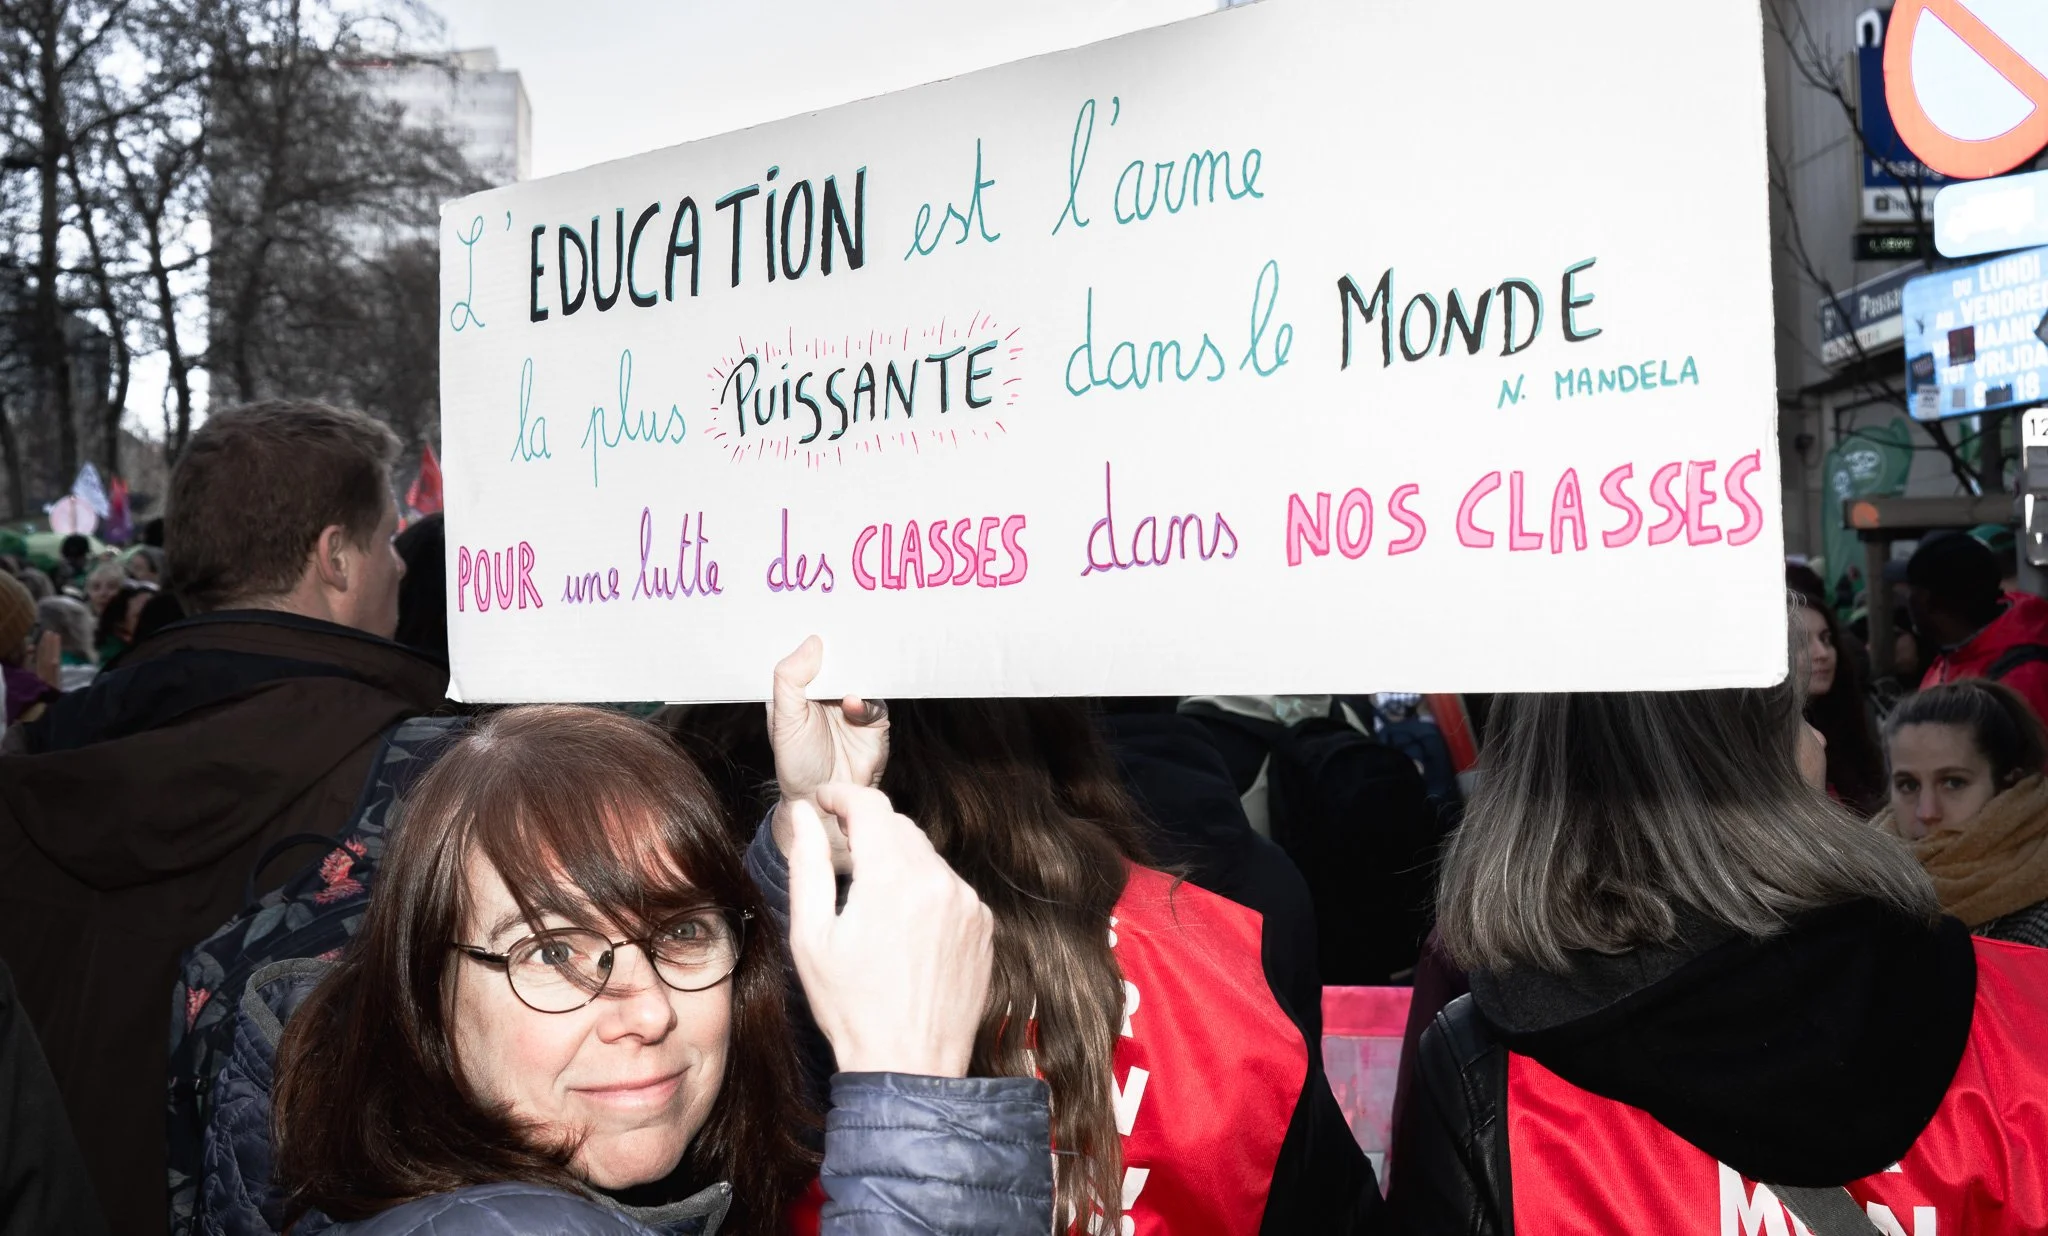 L'EDUCATiON est l'arme
la plus PUiSSANTE dans le MONDE
N. MANDELA
POUR une lutte des CLASSES dans NOS CLASSES
DU LUNDI
AU VENDREDI